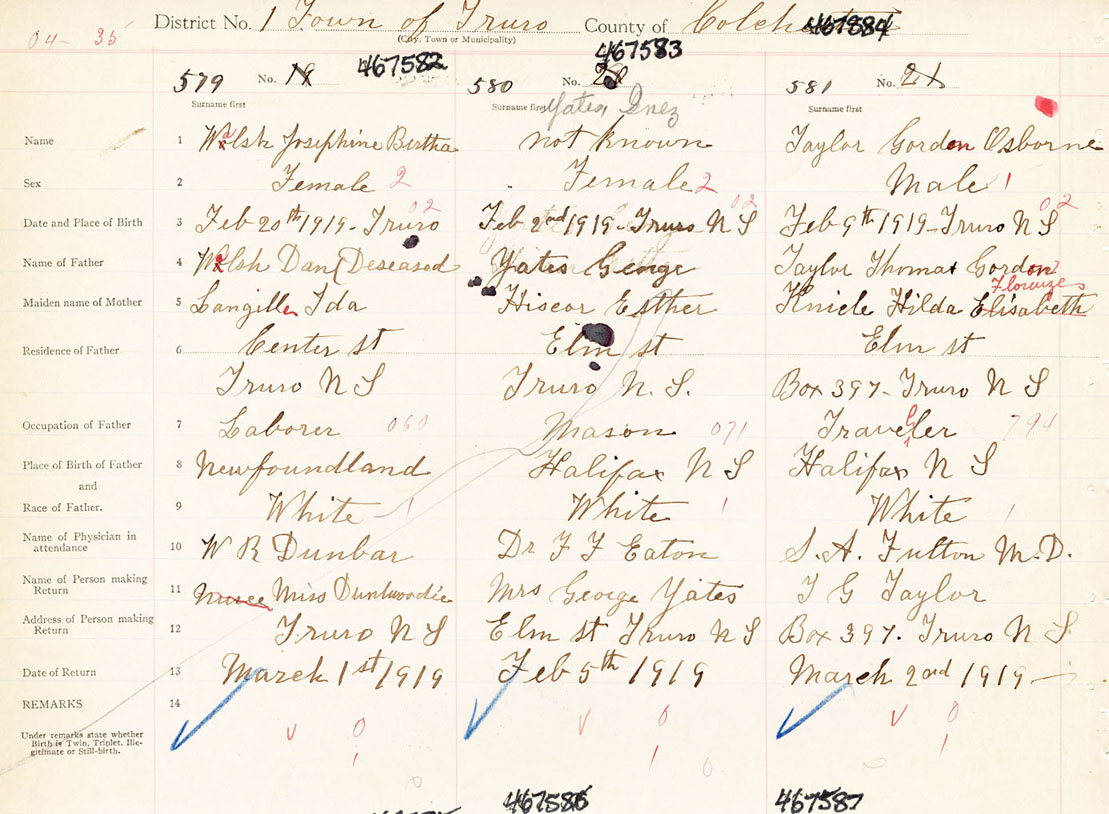 04- 35
District No. 1 Town of Truro County of Colchester
(City, Town or Municipality)
467582 467583 467584
579 No. 19 580 No. 20 581 No. 21
Surname first Surname first Surname first
Yates, Inez
Name 1 Walsh Josephine Bertha not known Taylor Gordon Osborne
Sex 2 Female 2 Female 2 Male 1
02 02 02
Date and Place of Birth 3 Feb 20th 1919 - Truro Feb 2nd 1919 - Truro N S Feb 9th 1919 - Truro N S
Name of Father 4 Walsh Dan (Deseased Yates George Taylor Thomas Gordon
Florence
Maiden name of Mother 5 Langille Ida Hiscor Esther Knicle Hilda Elisabeth
Residence of Father 6 Center st Elm st Elm st
Truro N S Truro N. S. Box 397 - Truro N S
Occupation of Father 7 Laborer 060 Mason 071 Traveller 794
Place of Birth of Father 8 Newfoundland Halifax N S Halifax N S
and
Race of Father. 9 White 1 White 1 White 1
Name of Physician in attendance 10 W R Dunbar Dr F F Eaton S. A. Fulton M.D.
Name of Person making Return 11 Nurse Miss Duntwoodie Mrs George Yates T G Taylor
Address of Person making Return 12 Truro N S Elm st Truro N S Box 397. Truro N S.
Date of Return 13 March 1st 1919 Feb 5th 1919 March 2nd 1919 -
REMARKS 14
Under remarks state whether
Birth is Twin, Triplet, Ille-
gitimate or Still-birth.
V 0 V 0 V 0
1 1 1
0 0 0
467586 467587